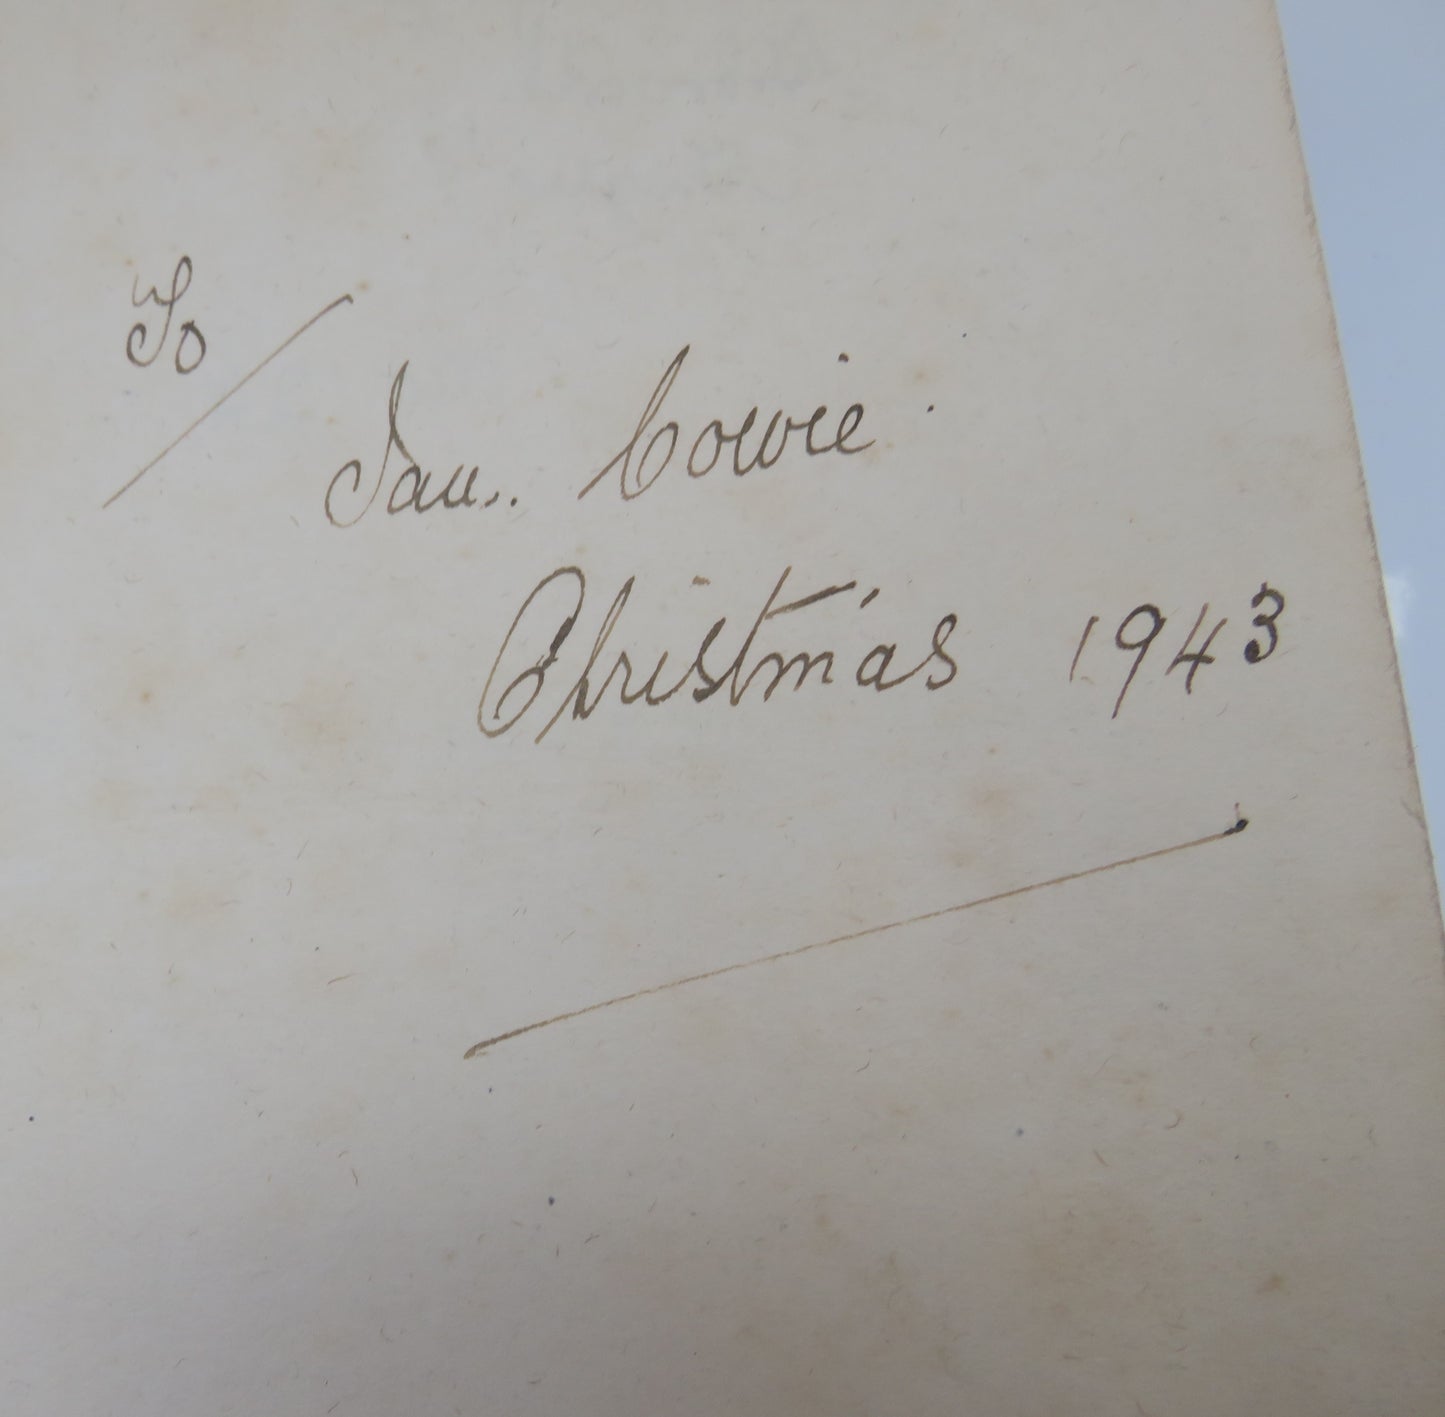 To
Cowie.
Christmas 1943